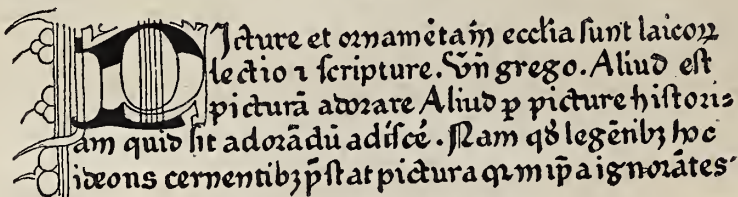 Picture et ornamēta in̄ eccl̄ia sunt laicoꝝ
lectio ⁊ scripture. Vn̄ grego. Aliud est
picturā adorare Aliud ꝑ picture histori⸗
am quid sit adorādū adiscē. Nam qđ legēnbꝫ hoc
ideons cernentibꝫ p̄stat pictura qꝛ in ip̄a ignorātes